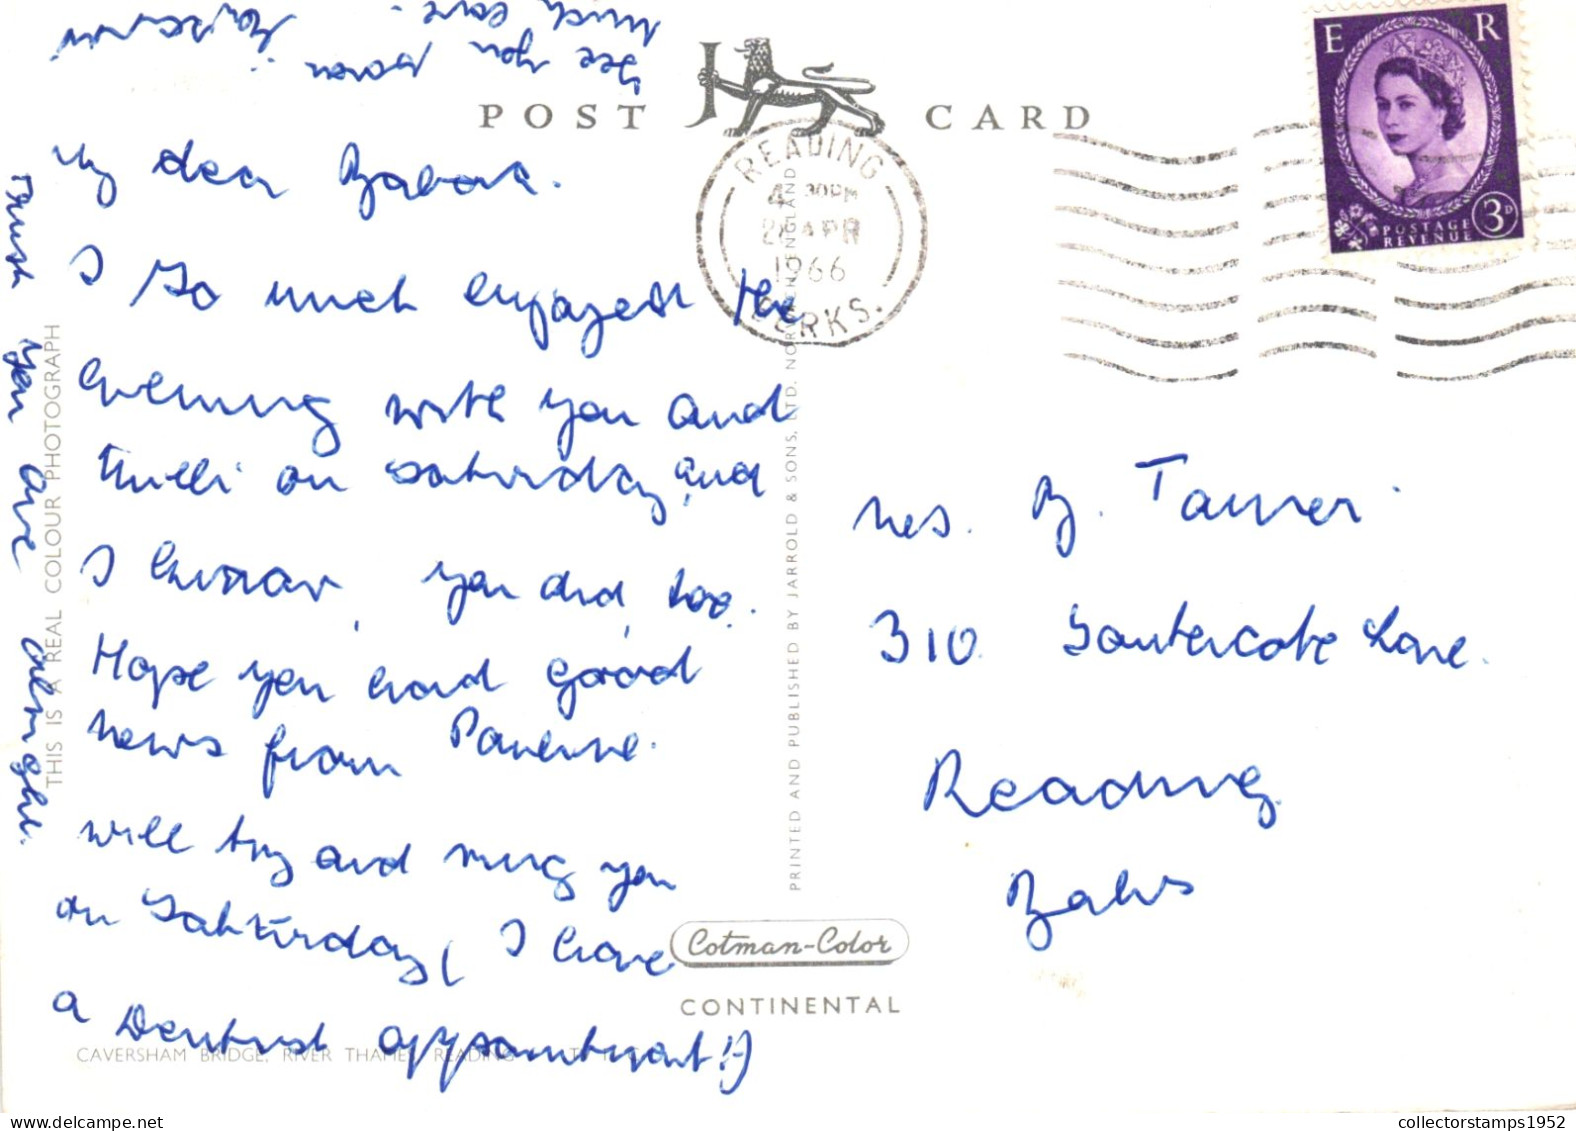 POST CARD
E R
3D
POSTAGE
REVENUE
READING
4 30PM
APR
1966
BERKS.
My dear Babara.
I so much enjoyed the
evening with you and
on Saturday, and
I know, you did, too.
Hope you had good
news from
will try and ring you
on Saturday, (I have
a Dentist appointment!)
Trust you are alright.
See you soon
Much love.
Mrs. B. Tanner.
310 Southcote Lane.
Reading
Berks
THIS IS A REAL COLOUR PHOTOGRAPH
PRINTED AND PUBLISHED BY JARROLD & SONS, LTD. NORWICH ENGLAND
Cotman-Color
CONTINENTAL
CAVERSHAM BRIDGE, RIVER THAMES, READING
collectorstamps1952